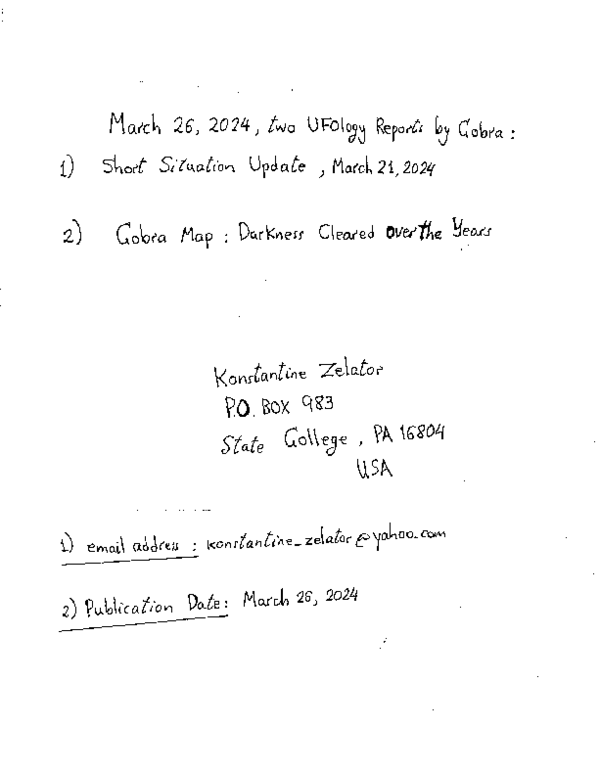 March 26, 2024, two UFOlogy Reports by Cobra :
1) Short Situation Update , March 21, 2024
2) Cobra Map : Darkness Cleared over the Years
Konstantine Zelator
P.O. BOX 983
State College , PA 16804
USA
1) email address : konstantine_zelator@yahoo.com
2) Publication Date: March 26, 2024